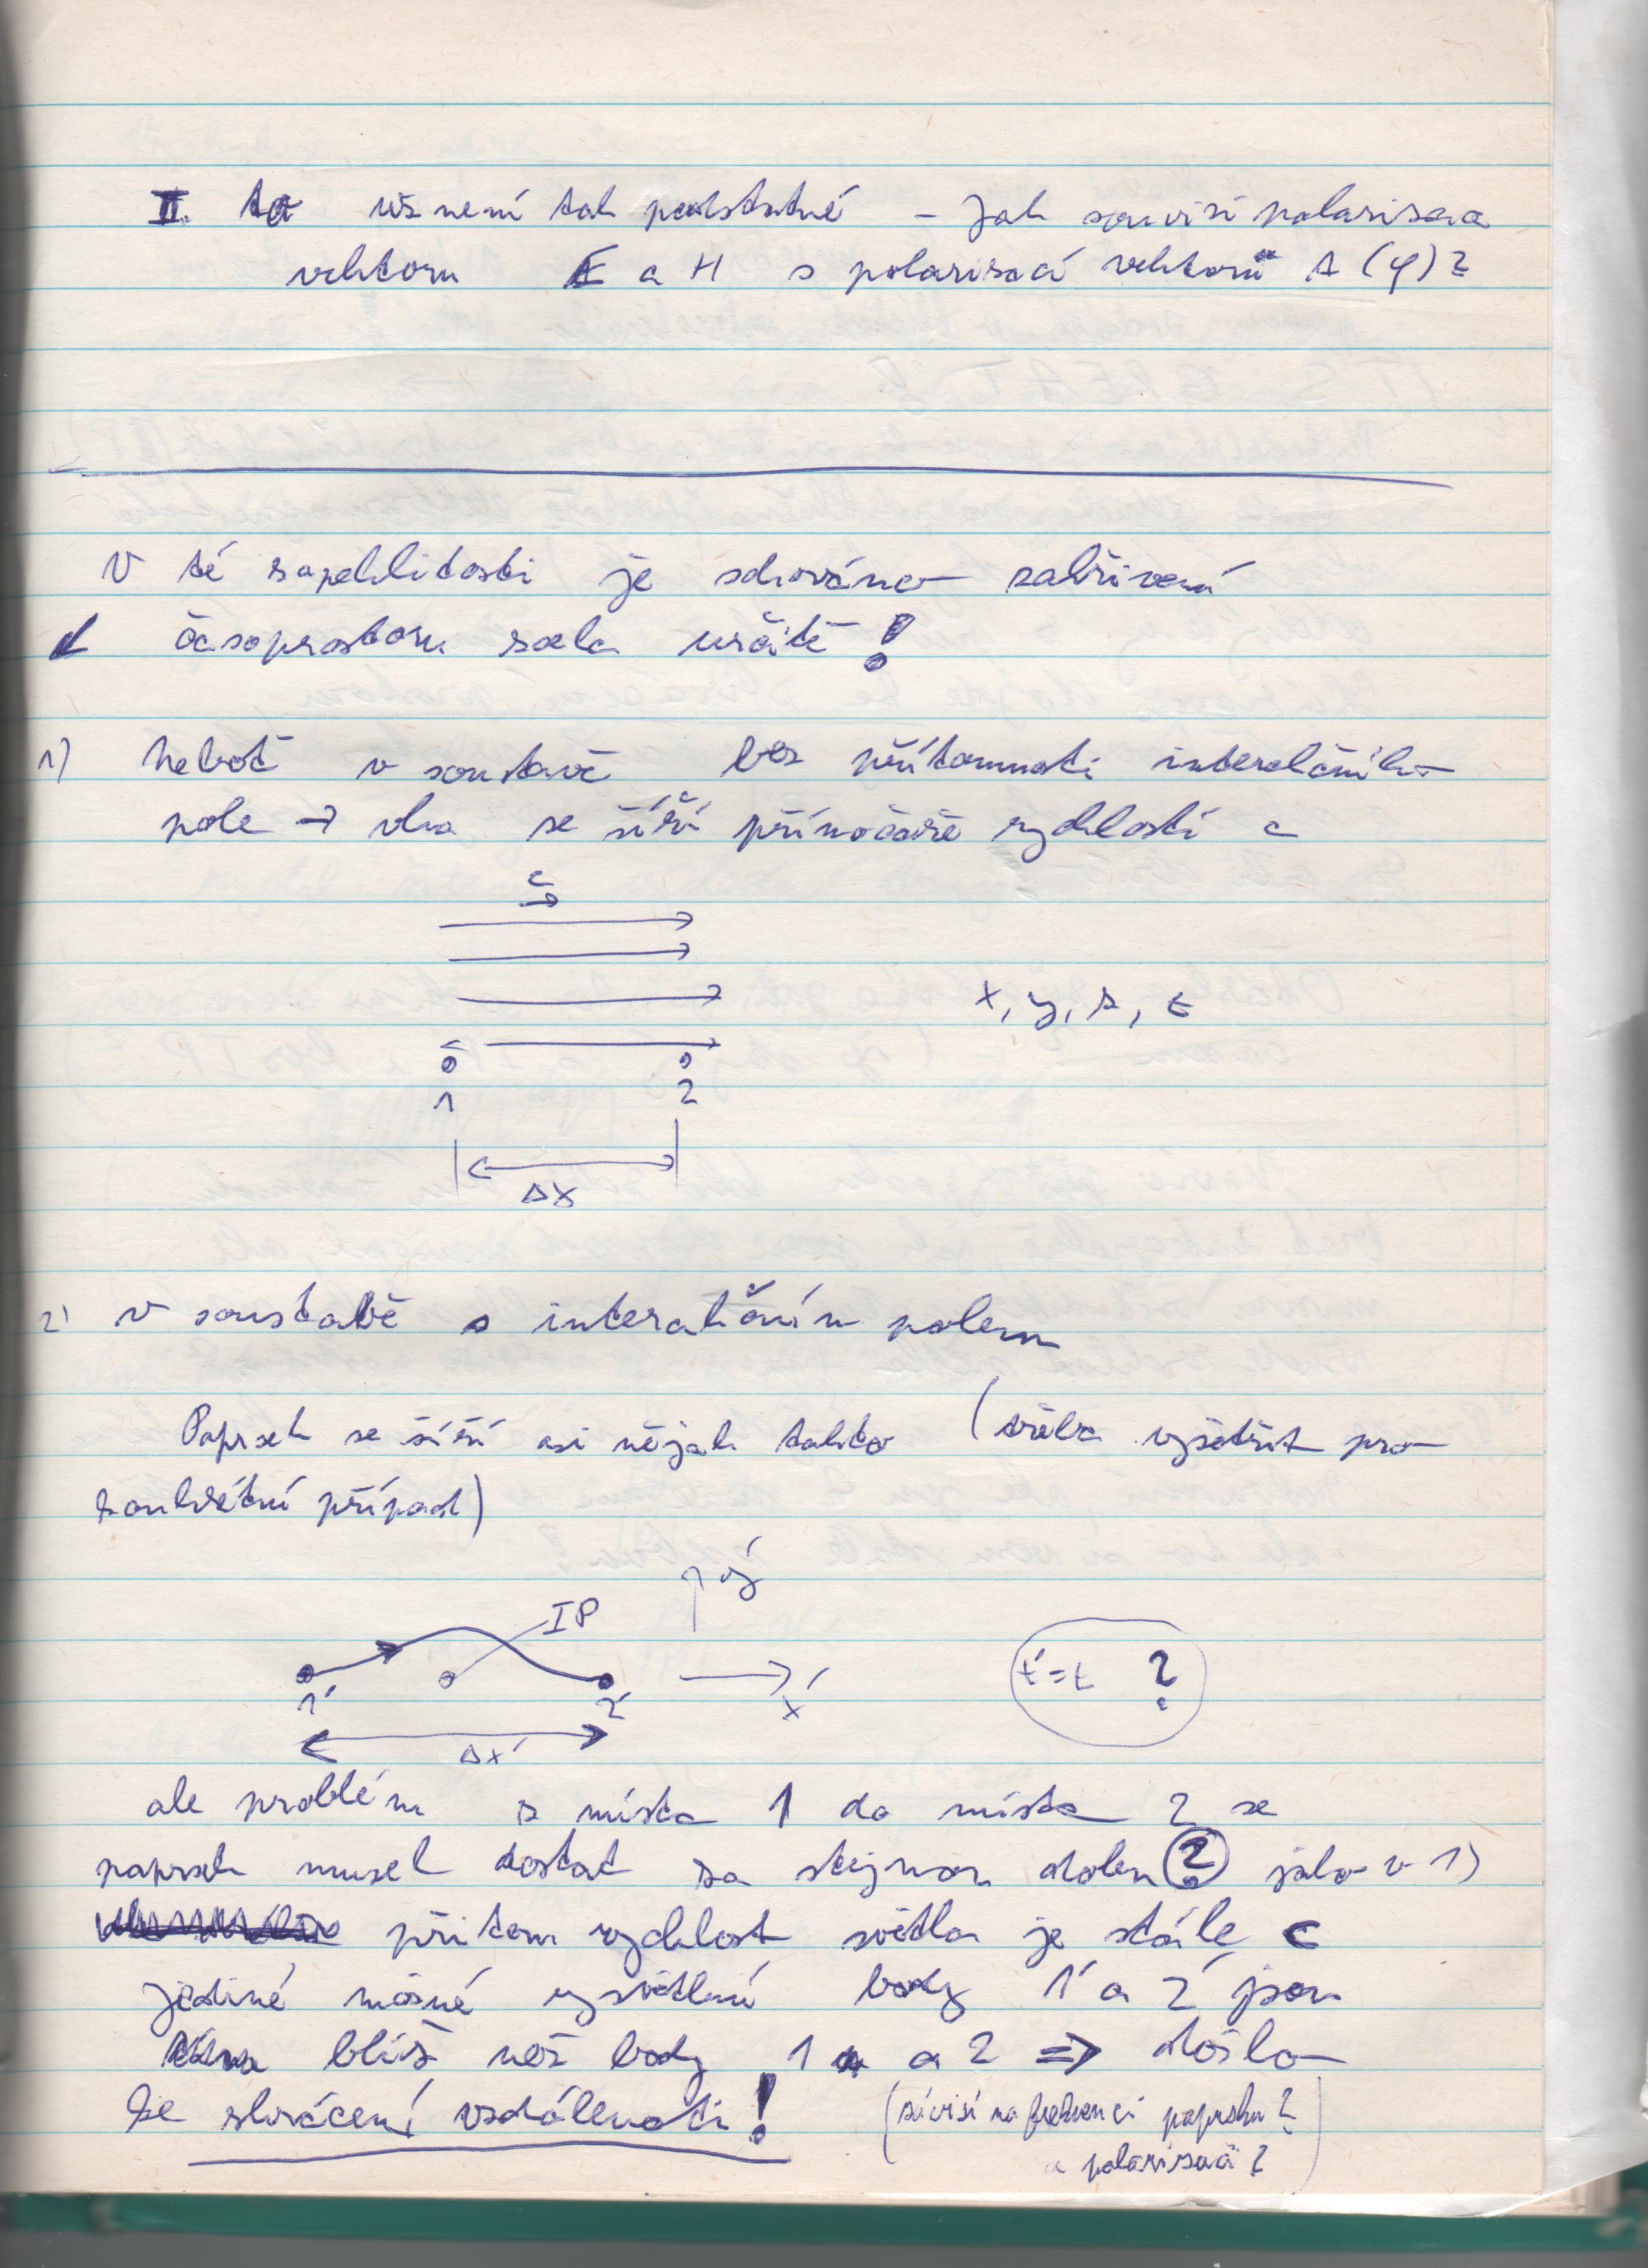 II. to už není tak podstatné – jak souvisí polarisace
vektoru E a H s polarisací vektorů A (φ) ?
V té zapeklitosti je schováno zakřivení
časoprostoru zcela určitě !
1) Neboť v soustavě bez přítomnosti interakčního
pole → vlna se šíří přímočaře rychlostí c
c
x, y, z, t
1 2
Δx
2) v soustavě s interakčním polem
Paprsek se šíří asi nějak takto (třeba vyšetřit pro
konkrétní případ)
y'
IP
1' 2' x' t'=t ?
Δx'
ale problém z místa 1 do místa 2 se
paprsek musel dostat za stejnou dobu ? jako v 1)
přitom rychlost světla je stále c
jediné možné vysvětlení body 1' a 2' jsou
blíž než body 1 a 2 ⇒ došlo
ke zkrácení vzdálenosti !
(závisí na frekvenci paprsku ?
a polarisaci ?)